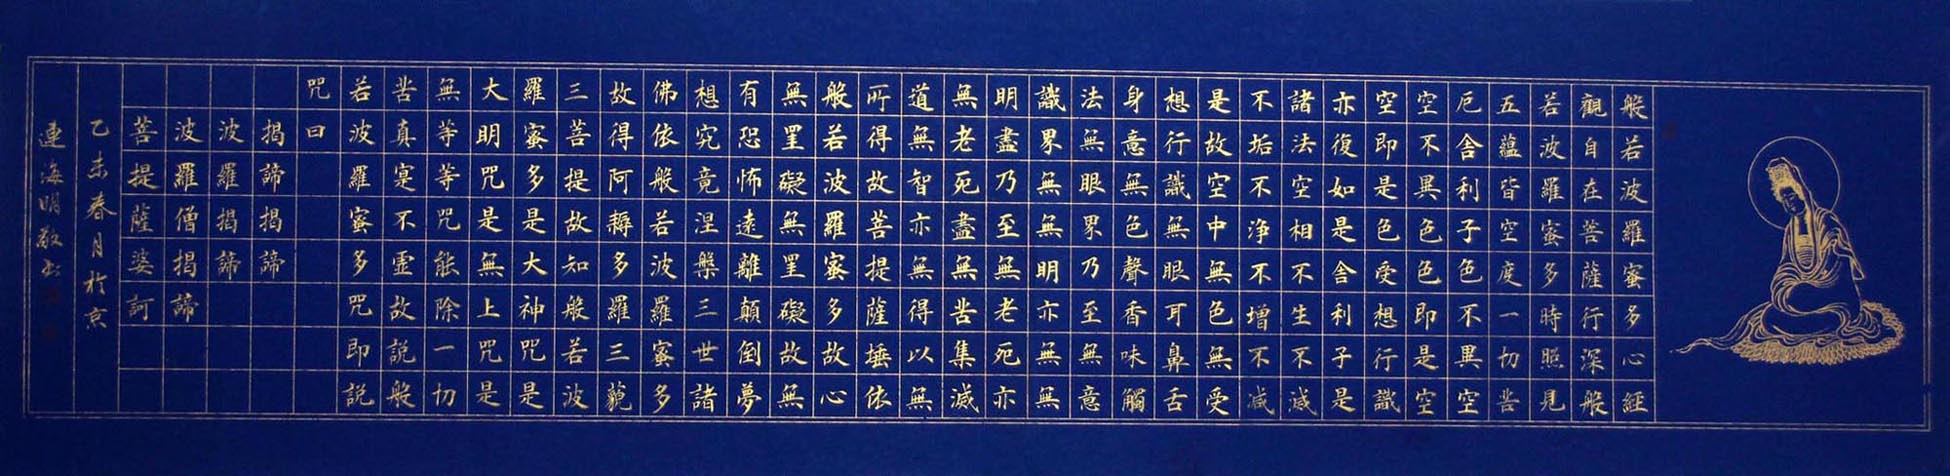 般若波羅蜜多心經
觀自在菩薩行深般
若波羅蜜多時照見
五蘊皆空度一切苦
厄舍利子色不異空
空不異色色即是空
空即是色受想行識
亦復如是舍利子是
諸法空相不生不滅
不垢不净不增不減
是故空中無色無受
想行識無眼耳鼻舌
身意無色聲香味觸
法無眼界乃至無意
識界無無明亦無無
明盡乃至無老死亦
無老死盡無苦集滅
道無智亦無得以無
所得故菩提薩埵依
般若波羅蜜多故心
無罣礙無罣礙故無
有恐怖遠離顛倒夢
想究竟涅槃三世諸
佛依般若波羅蜜多
故得阿耨多羅三藐
三菩提故知般若波
羅蜜多是大神咒是
大明咒是無上咒是
無等等咒能除一切
苦真寔不虛故說般
若波羅蜜多咒即說
咒曰
揭諦揭諦
波羅揭諦
波羅僧揭諦
菩提薩婆訶
乙未春月於京
連海明敬書